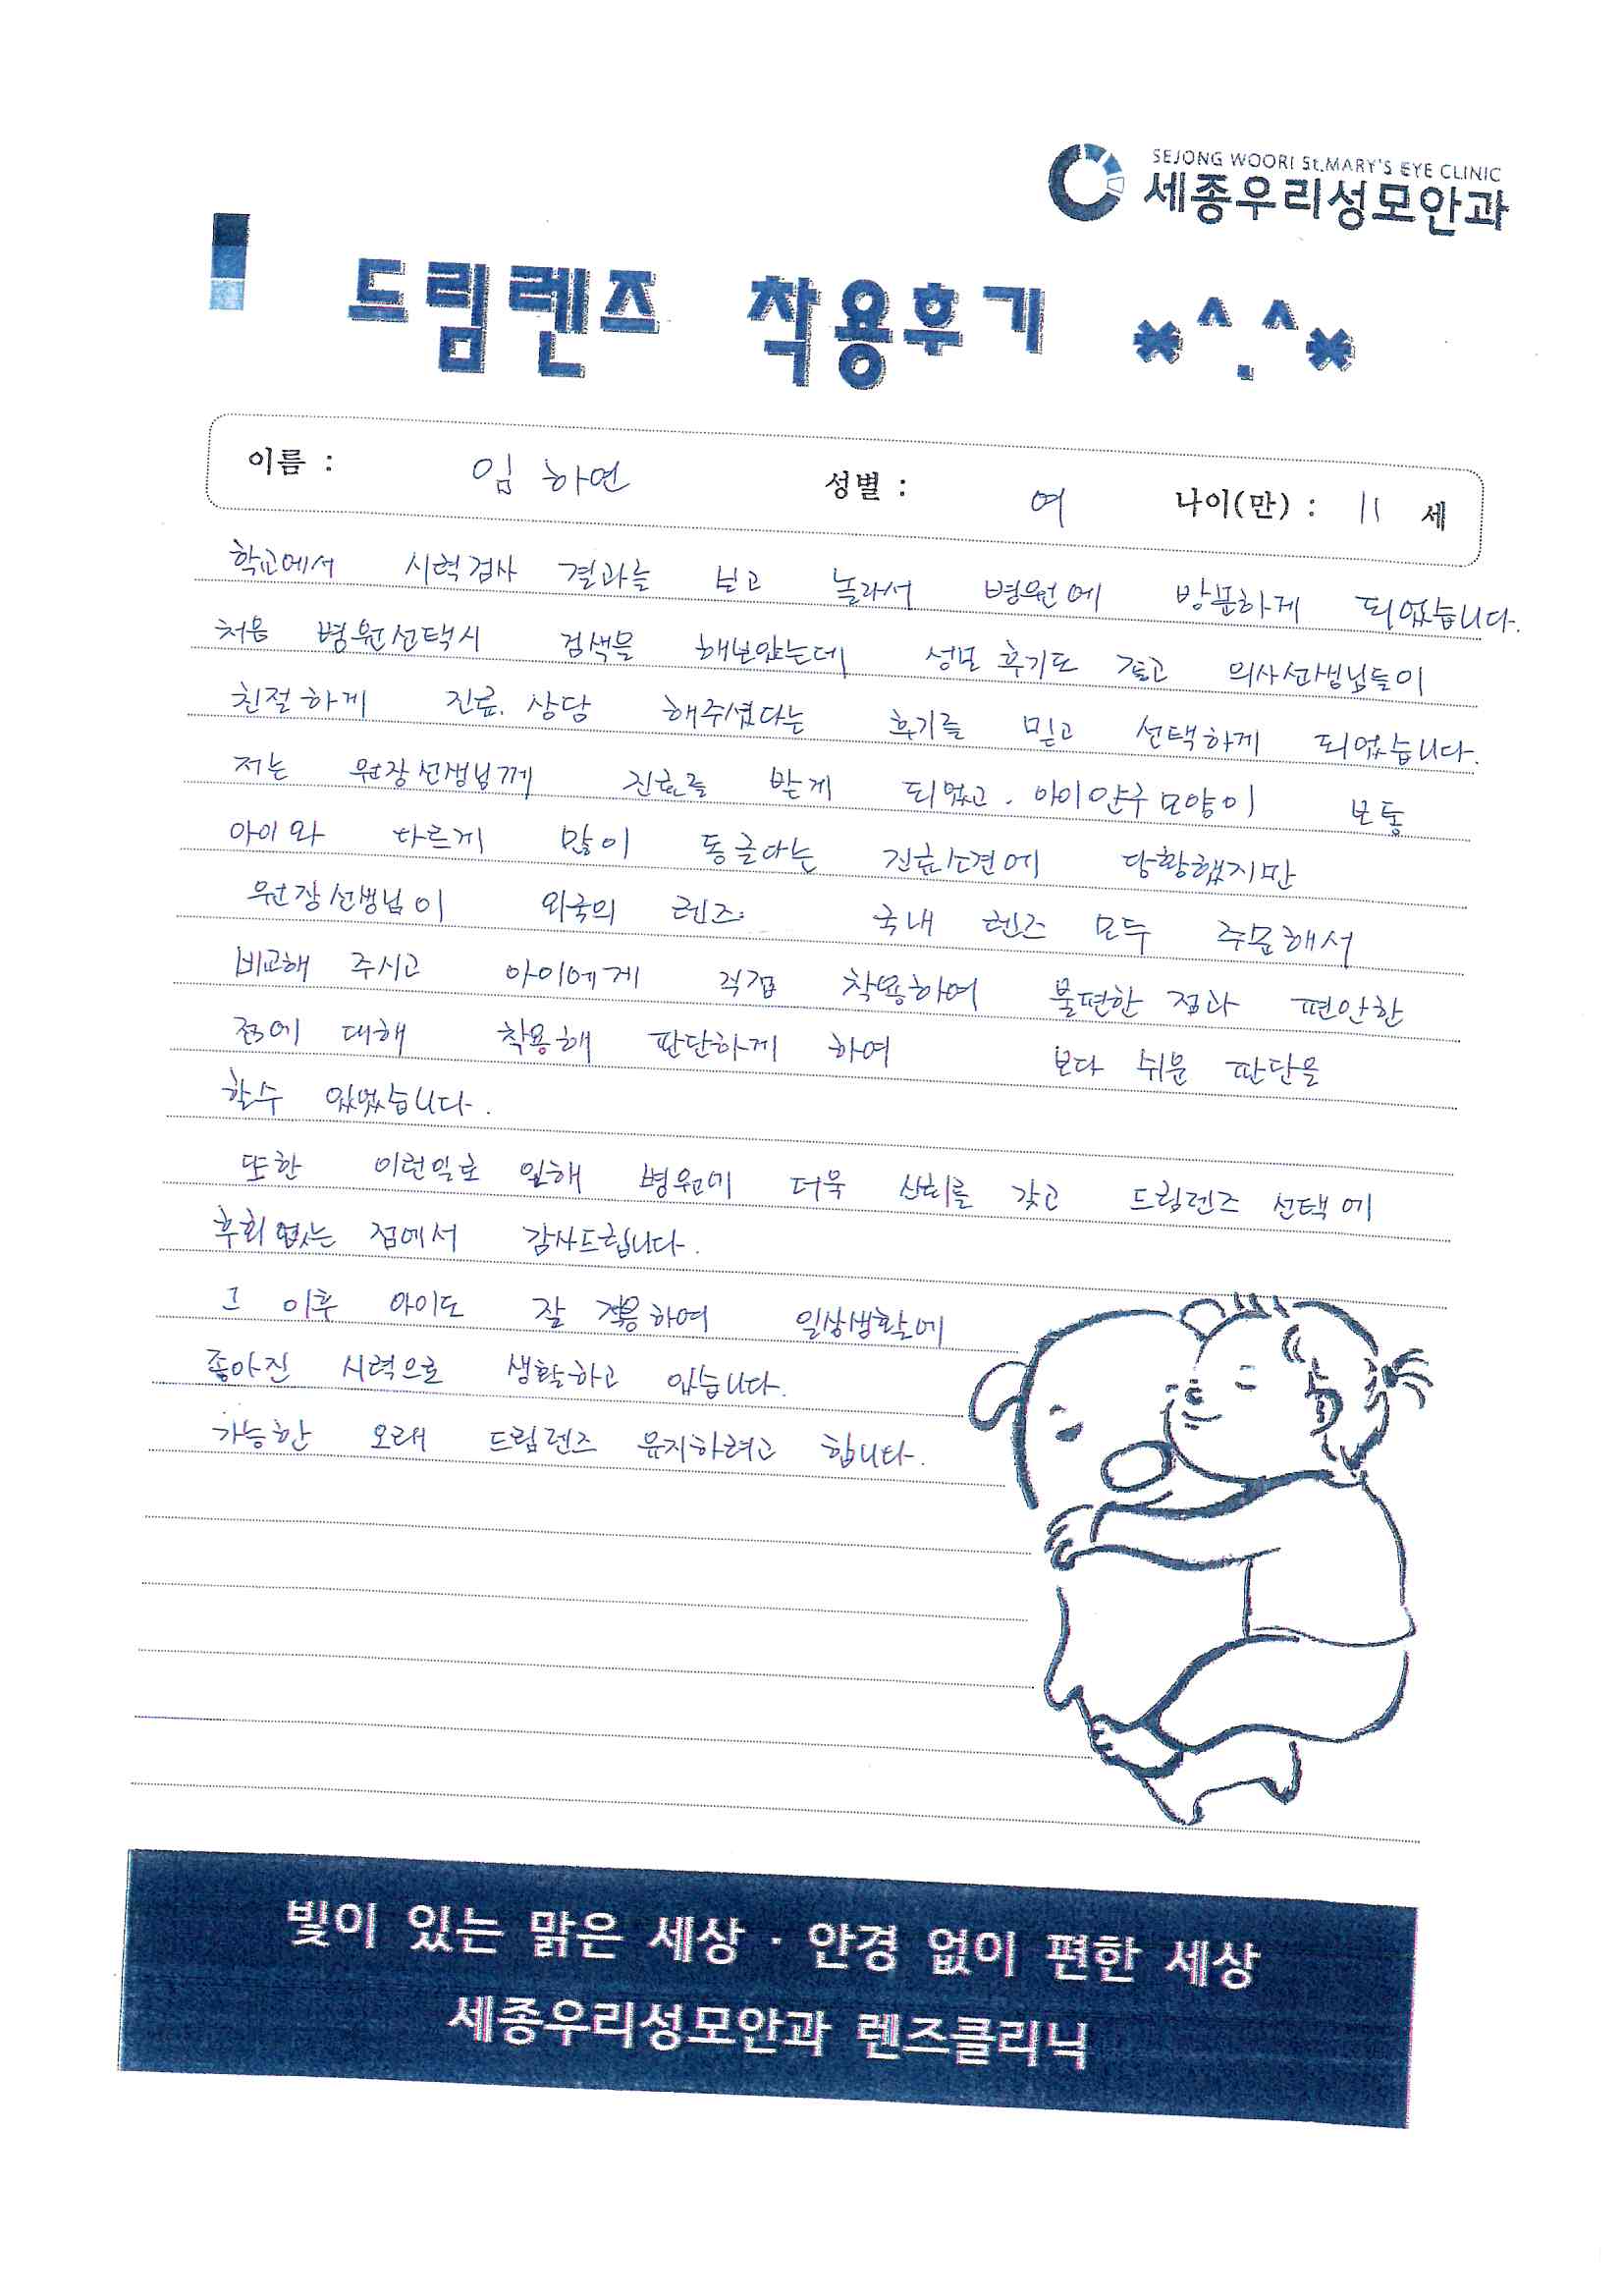 SEJONG WOORI St.MARY'S EYE CLINIC
세종우리성모안과
드림렌즈 착용후기 *^.^*
이름 : 임하연 성별 : 여 나이(만) : 11 세
학교에서 시력검사 결과를 보고 놀라서 병원에 방문하게 되었습니다.
처음 병원선택시 검색을 해보았는데 성모 후기도 좋고 의사선생님들이
친절하게 진료. 상담 해주셨다는 후기를 믿고 선택하게 되었습니다.
저는 원장선생님께 진료를 받게 되었고. 아이안구모양이 보통
아이와 다르게 많이 동글다는 진료소견에 당황했지만
원장선생님이 외국의 렌즈. 국내 렌즈 모두 주문해서
비교해 주시고 아이에게 직접 착용하여 불편한 점과 편안한
점에 대해 착용해 판단하게 하여 보다 쉬운 판단을
할수 있었습니다.
또한 이런일로 인해 병원에 더욱 신뢰를 갖고 드림렌즈 선택에
후회없는 점에서 감사드립니다.
그 이후 아이도 잘 적응하여 일상생활에
좋아진 시력으로 생활하고 있습니다.
가능한 오래 드림렌즈 유지하려고 합니다.
빛이 있는 맑은 세상 · 안경 없이 편한 세상
세종우리성모안과 렌즈클리닉